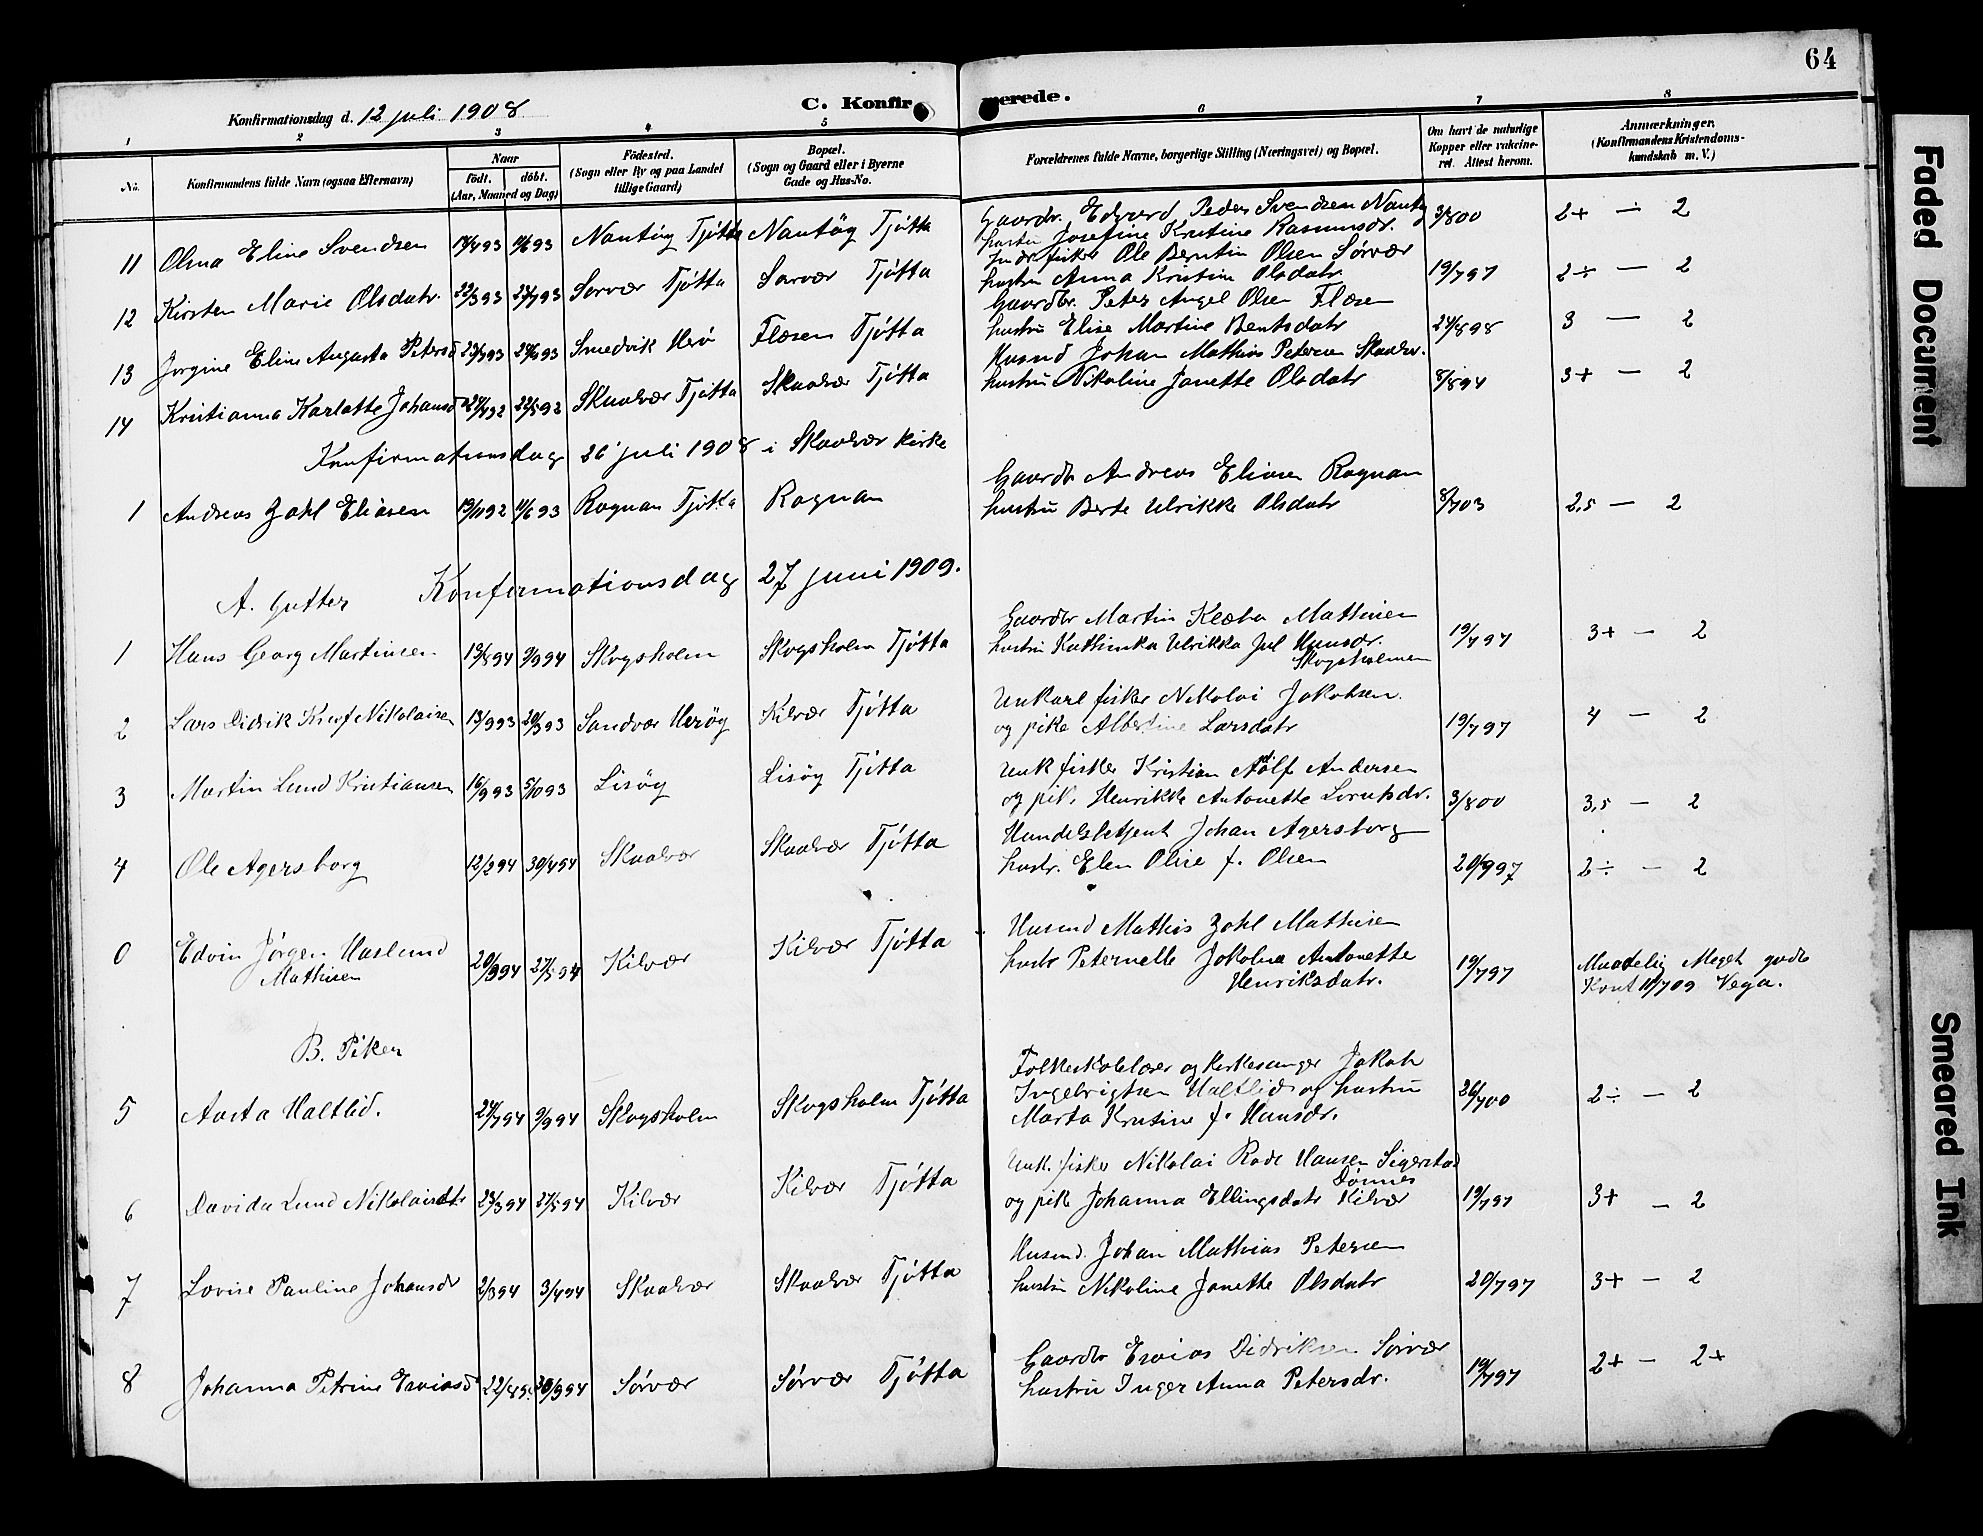 64
C. Konfirmerede.
Konfirmationsdag d. 12 juli 1908
1 2 3 4 5 6 7 8
No.
Konfirmandens fulde Navn (ogsaa Efternavn)
Naar
födt. döbt.
(Aar, Maaned og Dag)
Födested.
(Sogn eller By og paa Landet
tillige Gaard)
Bopæl.
(Sogn og Gaard eller i Byerne
Gade og Hus-No.
Forældrenes fulde Navne, borgerlige Stilling (Næringsvei) og Bopæl.
Om havt de naturlige
Kopper eller vakcine-
ret. Attest herom.
Anmærkninger.
(Konfirmandens Kristendoms-
kundskab m. V.)
11 Olma Eline Svendsen Nantöy Tjötta Nantöy Tjötta Gaardbr. Edvard Peder Svendsen
hustru Josefine Kristine Rasmusdr. 3/8 00 2+ — 2
12 Kirsten Marie Olsdatr. 22/3 93 Sørvær Tjøtta Sørvær Tjøtta Inder fisker Ole Berntin Olsen Sørvær
hustru Anna Kristine Olsdatr. 19/7 97 2÷ — 2
13 Jørgine Eline Augusta Petersd Smedvik Herö Flæsen Tjøtta Gaardbr. Peter Angel Olsen Flæsen
hustru Elise Martine Bentsdatr 24/8 98 3 — 2
14 Kristianna Karlotte Johansd 22/5 92 Skaalvær Tjøtta Skaalvær Tjøtta Husmd Johan Mathias Petersen Skaalvr.
hustru Nikoline Janette Olsdatr 8/8 94 3+ — 2
Konfirmationsdag 26 juli 1908 i Skaalvær kirke
1 Andreas Zahl Eliasen 19/11 92 11/6 93 Rognan Tjøtta Rognan Gaardbr Andreas Eliasen Rognan
hustru Berte Ulrikke Olsdatr 8/7 03 2,5 — 2
Konfirmationsdag 27 juni 1909.
A. Gutter
1 Hans Georg Martinsen 13/8 94 9/9 94 Skogsholm Skogsholm Tjøtta Gaardbr Martin Klæbo Mathisen
hustru Kathinka Ulrikka Jul Hansdr.
Skogsholmen 19/7 97 3+ — 2
2 Lars Didrik Nikolaisen Sandvær Herøy Kilvær Tjøtta Unkarl fisker Nikolai Jakobsen.
og pike Albertine Larsdatr 19/7 97 4 — 2
3 Martin Lund Kristiansen 16/9 93 5/10 93 Lisöy Lisöy Tjötta Unk fisker Kristian Adolf Andersen
og pik. Henrikke Antonette Lorntsdr. 3/8 00 3,5 — 2
4 Ole Agersborg 12/2 94 30/4 94 Skaalvær Skaalvær Tjøtta Handelsbetjent Johan Agersborg
hustr. Elen Olise f. Olsen 20/9 97 2÷ — 2
0 Edvin Jørgen Haslund
Mathisen 27/5 94 Kilvær Kilvær Tjøtta Husmd Mathis Zahl Mathisen
hustr Peternelle Jakobna Antonette
Henriksdatr. 19/7 97 Maadelig Meget godt
Konf 11/7 09 Vega.
B. Piker
5 Aasta Haltlid. 24/7 94 9/9 94 Skogsholm Skogsholm Tjøtta Folkeskolelærer og Kirkesanger Jakob
Ingebrigtsen Haltlid og hustru
Marta Kristine f. Hansdr. 26/7 00 2÷ — 2
6 Davida Lund Nikolaisdtr 23/3 94 27/5 94 Kilvær Kilvær Tjøtta Unk. fisker Nikolai Rode Hansen Sigerstad
Dønnes
og pik Johanna Ellingsdatr Kilvær 19/7 97 3+ — 2
7 Lovise Pauline Johansdr 2/3 94 3/4 94 Skaalvær Skaalvær Tjøtta Husmd. Johan Mathias Petersen
hustru Nikoline Janette Olsdatr 20/7 97 3+ — 2
8 Johanna Petrine Esaiasd Sørvær Sørvær Tjøtta Gaardbr Esaias Didriksen Sørvær
hustru Inger Anna Petersdr. 19/7 97 2+ — 2+
Faded Document
Smeared Ink